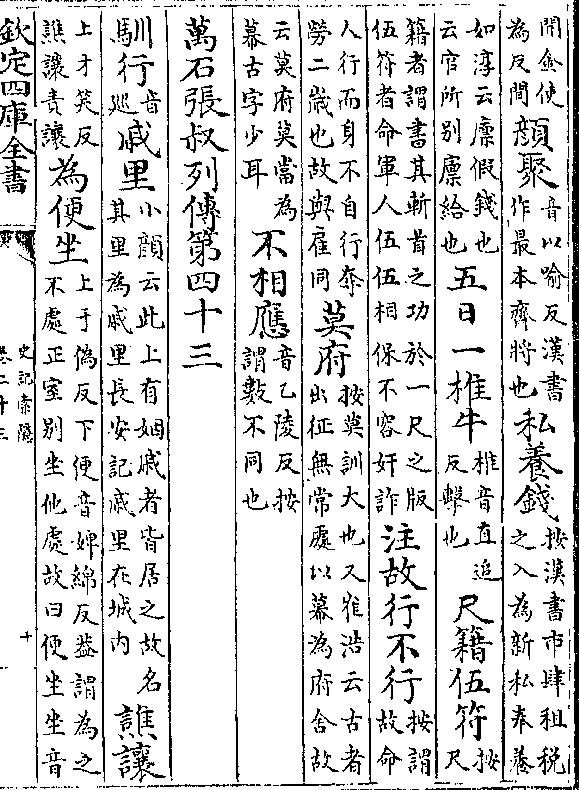 開金使為反間顔聚音以喻反漢書作最本齊將也私養錢按漢書市肆租税之入為新私奉養
如淳云廪假錢也云官所别廪給也五日一椎牛椎音直追反擊也尺籍伍符按尺
籍者謂書其斬首之功於一尺之版伍符者命軍人伍伍相保不容奸詐注故行不行按謂故命
人行而身不自行奪勞二歲也故與雇同莫府按莫訓大也又崔浩云古者出征無常處以幕為府舍故
云莫府莫當為幕古字少耳不相應音乙陵反按謂數不同也
萬石張叔列傳第四十三
馴行音巡戚里小顔云此上有姻戚者皆居之故名其里為戚里長安記戚里在城内譙讓
上才笑反譙讓責讓為便坐上于偽反下便音婢綿反葢謂為之不處正室别坐他處故曰便坐坐音
欽定四庫全書
史記索隱
卷二十三
十